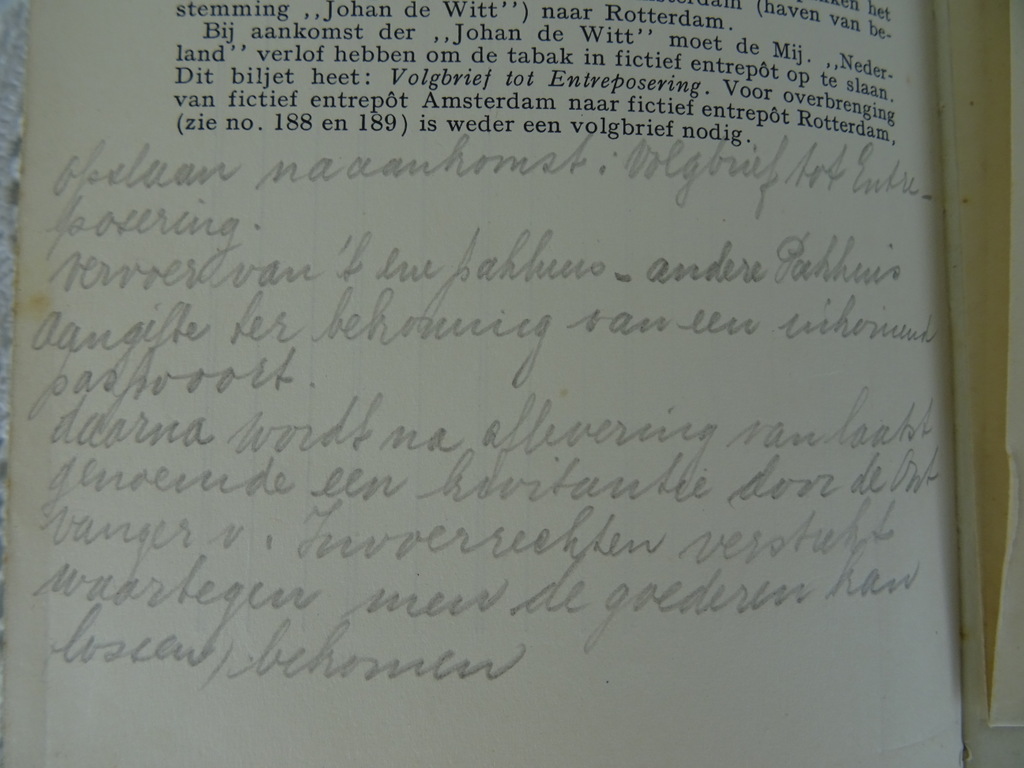 het
stemming ,,Johan de Witt'') naar Rotterdam. (haven van be-
Bij aankomst der ,,Johan de Witt'' moet de Mij. ,,Neder-
land'' verlof hebben om de tabak in fictief entrepôt op te slaan.
Dit biljet heet: Volgbrief tot Entreposering. Voor overbrenging
van fictief entrepôt Amsterdam naar fictief entrepôt Rotterdam,
(zie no. 188 en 189) is weder een volgbrief nodig.
opslaan na aankomst: Volgbrief tot Entre-
posering.
vervoer van 't ene pakhuis - andere Pakhuis
aangifte ter bekoming van een inkomend
paspoort.
daarna wordt na aflevering van laatst
genoemde een kwitantie door de Ont
vanger v. Invoerrechten verstrekt
waartegen men de goederen kan
lossen, bekomen